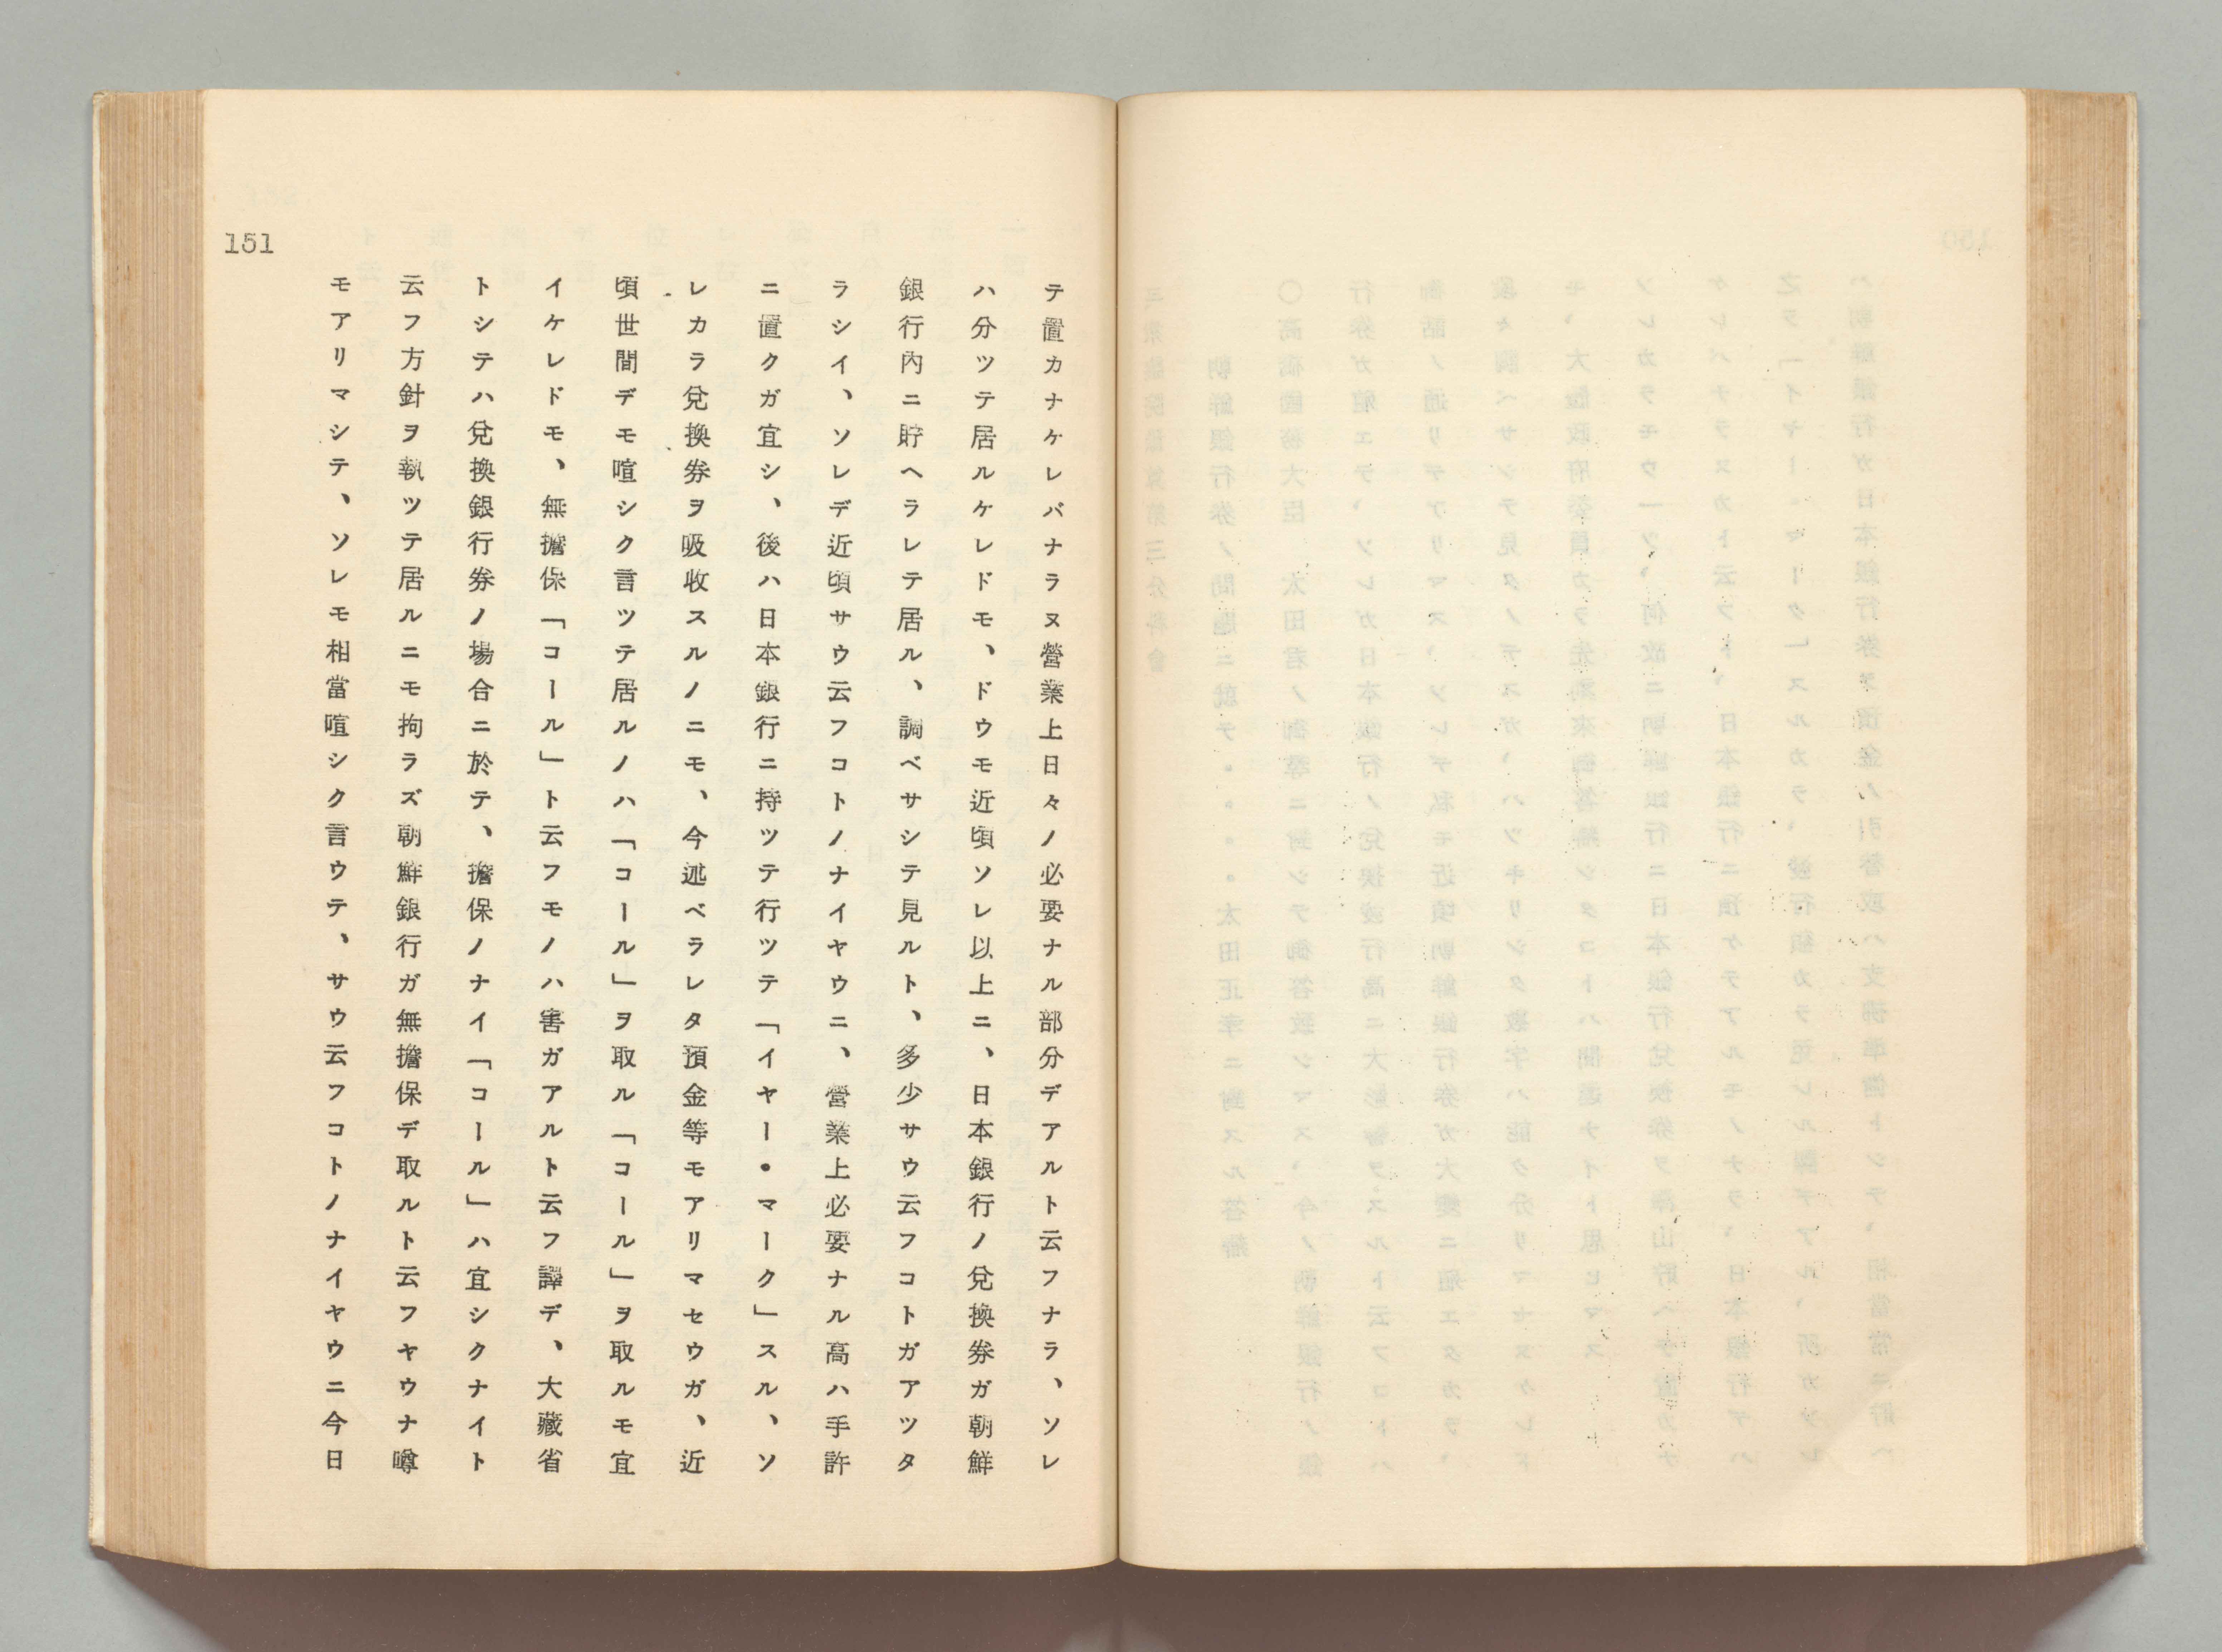 151
テ置カナケレバナラヌ營業上日々ノ必要ナル部分デアルト云フナラ、ソレ
ハ分ツテ居ルケレドモ、ドウモ近頃ソレ以上ニ、日本銀行ノ兌換券ガ朝鮮
銀行內ニ貯ヘラレテ居ル、調ベサシテ見ルト、多少サウ云フコトガアツタ
ラシイ、ソレデ近頃サウ云フコトノナイヤウニ、營業上必要ナル高ハ手許
ニ置クガ宜シ、後ハ日本銀行ニ持ツテ行ツテ「イヤー・マーク」スル、ソ
レカラ兌換券ヲ吸收スルノニモ、今述ベラレタ預金等モアリマセウガ、近
頃世間デモ喧シク言ツテ居ルノハ「コール」ヲ取ル「コール」ヲ取ルモ宜
イケレドモ、無擔保「コール」ト云フモノハ害ガアルト云フ譯デ、大藏省
トシテハ兌換銀行券ノ場合ニ於テ、擔保ノナイ「コール」ハ宜シクナイト
云フ方針ヲ執ツテ居ルニモ拘ラズ朝鮮銀行ガ無擔保デ取ルト云フヤウナ噂
モアリマシテ、ソレモ相當喧シク言ウテ、サウ云フコトノナイヤウニ今日